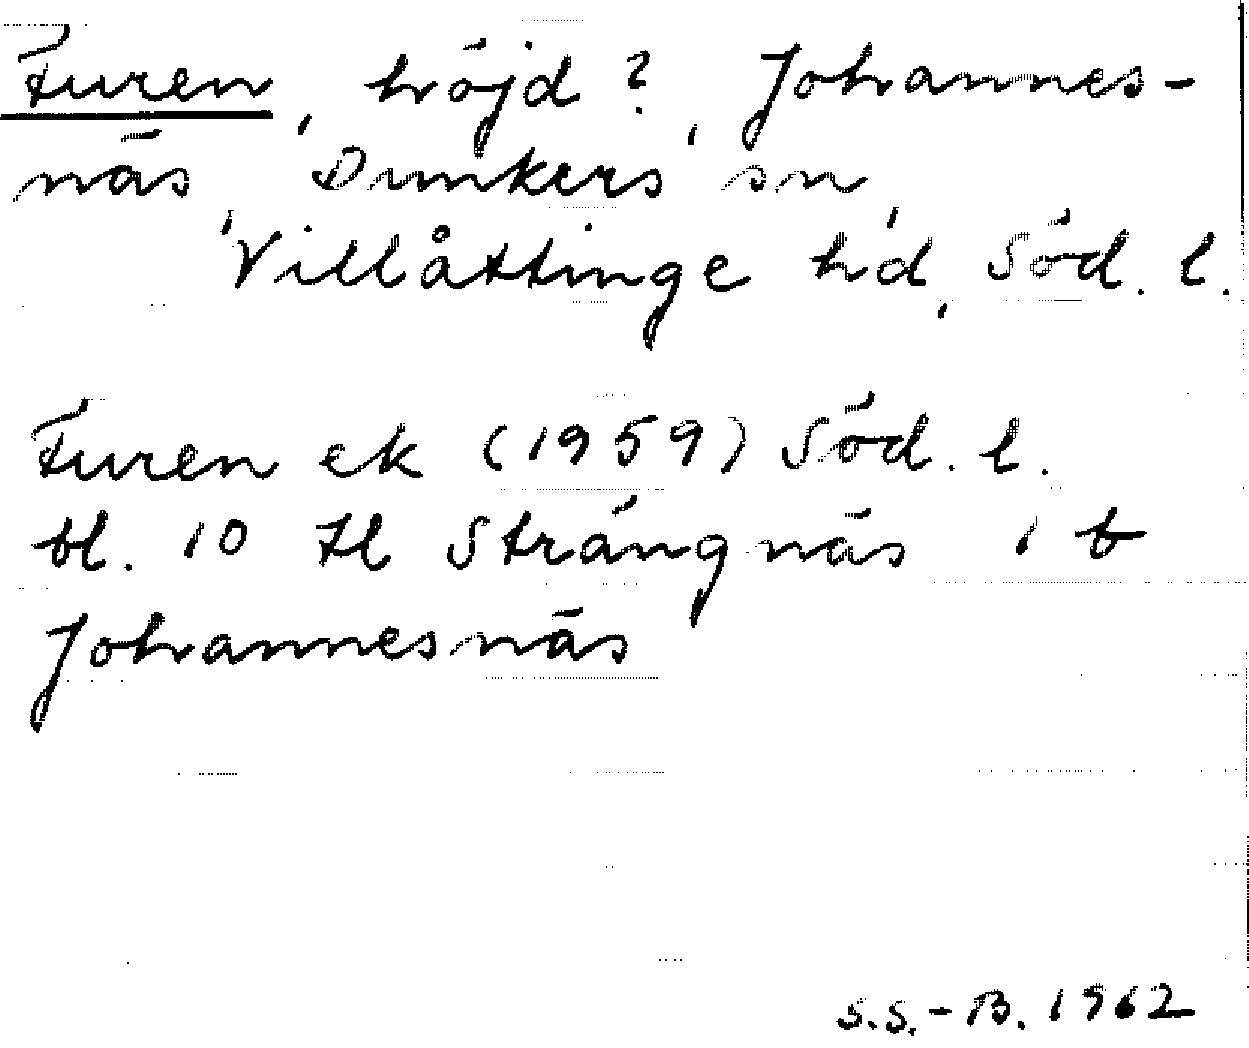 Furen, höjd?, Johannes-
näs, Dunkers sn,
Villåttinge hd, Söd. l.
Furen ek (1959) Söd. l.
bl. 10 tl Strängnäs 1 b
Johannesnäs
S.S.-B. 1962